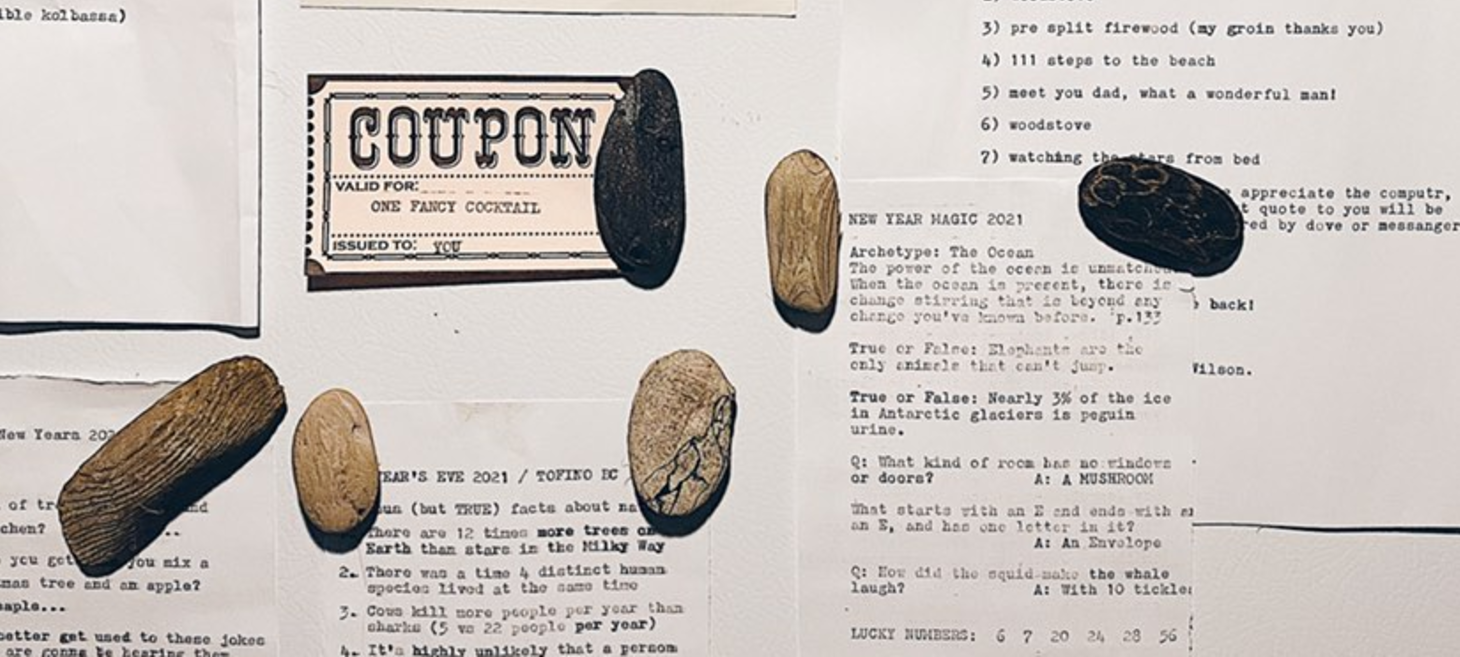 ble kolbassa)
COUPON
VALID FOR:
ONE FANCY COCKTAIL
ISSUED TO: YOU
3) pre split firewood (my groin thanks you)
4) 111 steps to the beach
5) meet you dad, what a wonderful man!
6) woodstove
7) watching the stars from bed
appreciate the computr,
t quote to you will be
red by dove or messanger
back!
Wilson.
NEW YEAR MAGIC 2021
Archetype: The Ocean
The power of the ocean is unmatched
When the ocean is present, there is
change stirring that is beyond any
change you've known before. p.133
True or False: Elephants are the
only animals that can't jump.
True or False: Nearly 3% of the ice
in Antarctic glaciers is peguin
urine.
Q: What kind of room has no windows
or doors? A: A MUSHROOM
What starts with an E and ends with
an E, and has one letter in it?
A: An Envelope
Q: How did the squid make the whale
laugh? A: With 10 tickle
LUCKY NUMBERS: 6 7 20 24 28 56
New Years 202
of tr nd
chen?
you get you mix a
mas tree and an apple?
eaple...
better get used to these jokes
are gonna be hearing them
YEAR'S EVE 2021 / TOFINO BC
un (but TRUE) facts about na
There are 12 times more trees on
Earth than stars in the Milky Way
2. There was a time 4 distinct human
species lived at the same time
3. Cows kill more people per year than
sharks (5 vs 22 people per year)
4. It's highly unlikely that a person